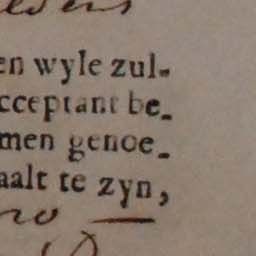 en wyle zul-
cceptant be-
men genoe-
aalt te zyn,